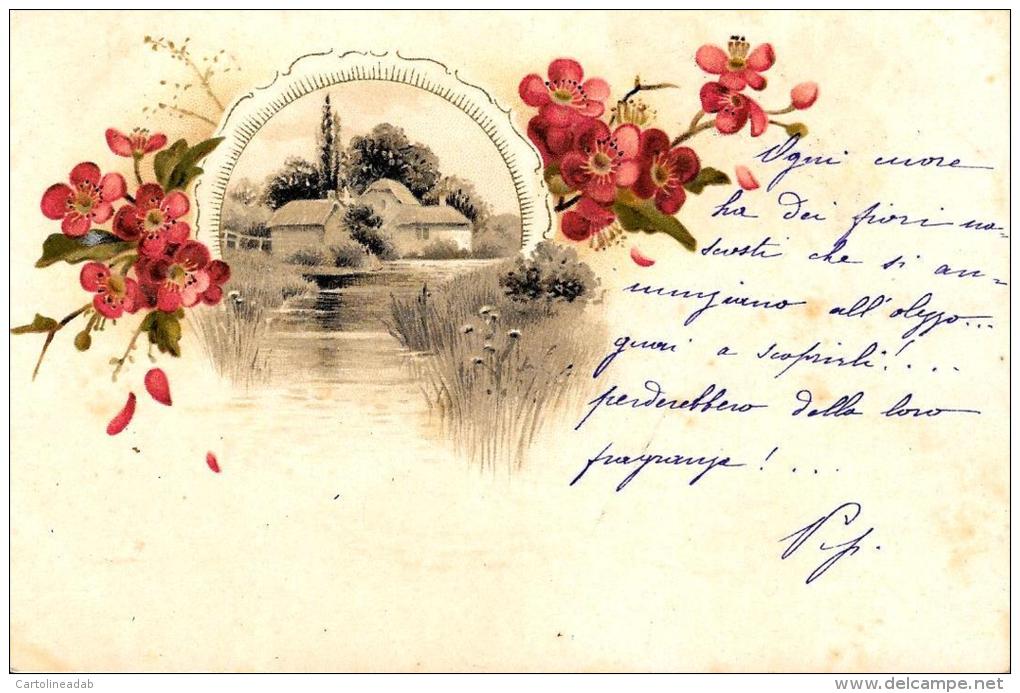 Ogni cuore
ha dei fiori na-
scosti che si an-
nunziano all'olezzo...
guai a scoprirli!....
perderebbero della loro
fragranza!...
Pip.
Cartolineadab
www.delcampe.net